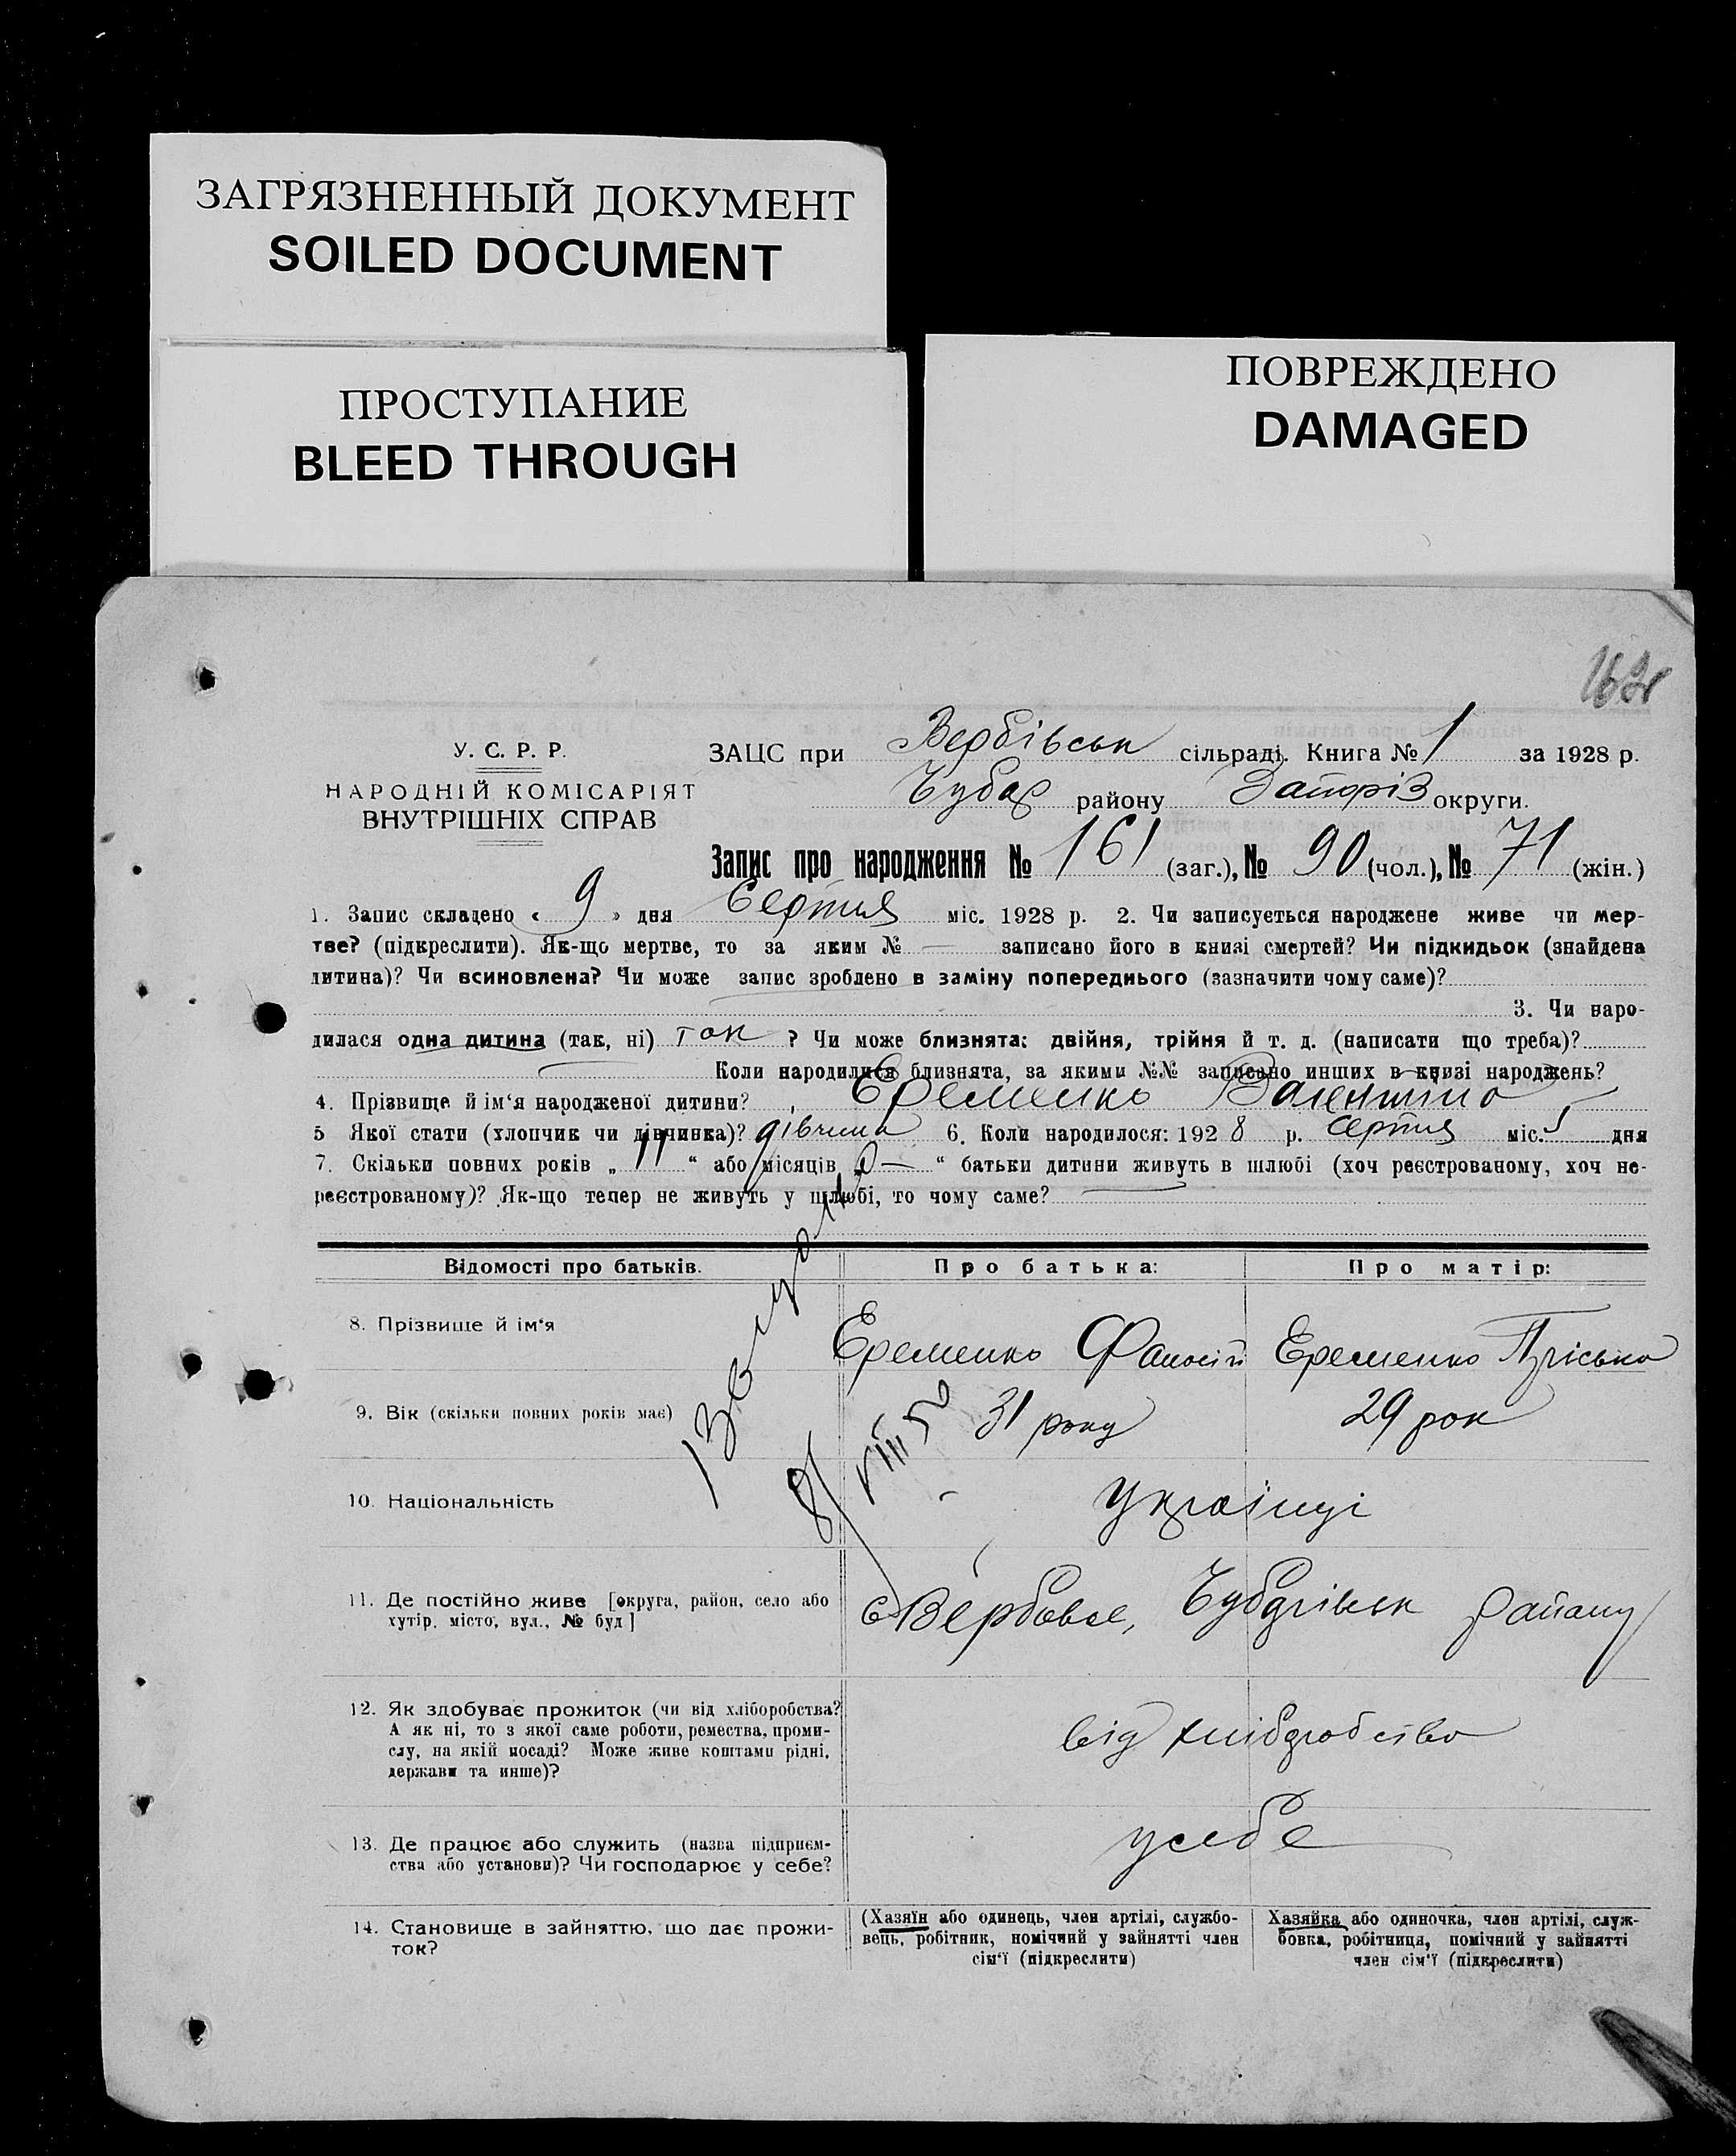 ЗАГРЯЗНЕННЫЙ ДОКУМЕНТ
SOILED DOCUMENT
ПРОСТУПАНИЕ
BLEED THROUGH
ПОВРЕЖДЕНО
DAMAGED
У. С. Р. Р.
НАРОДНІЙ КОМІСАРІЯТ
ВНУТРІШНІХ СПРАВ
ЗАЦС при Вербівськ сільраді. Книга № 1 за 1928 р.
Чубар району Запоріз округи.
Запис про народження № 161 (заг.), № 90 (чол.), № 71 (жін.)
1. Запис складено « 9 » дня Серпня міс. 1928 р. 2. Чи записується народжене живе чи мер-
тве? (підкреслити). Як-що мертве, то за яким № — записано його в книзі смертей? Чи підкидьок (знайдена
дитина)? Чи всиновлена? Чи може запис зроблено в заміну попереднього (зазначити чому саме)?
3. Чи наро-
дилася одна дитина (так, ні) так ? Чи може близнята: двійня, трійня й т. д. (написати що треба)?
Коли народилися близнята, за якими №№ записано инших в книзі народжень?
4. Прізвище й ім'я народженої дитини? Еременко Валентина
5 Якої стати (хлопчик чи дівчинка)? дівчина 6. Коли народилося: 1928 р. серпня міс. 5 дня
7. Скільки повних років „ 11 “ або місяців „ 0 — “ батьки дитини живуть в шлюбі (хоч реєстрованому, хоч не-
реєстрованому)? Як-що тепер не живуть у шлюбі, то чому саме?
Відомості про батьків. Про батька: Про матір:
8. Прізвище й ім'я Еременко Фанасій Еременко Пріська
9. Вік (скільки повних років має) 31 року 29 рок
8/VIII 50
10. Національність Українці
11. Де постійно живе [округа, район, село або
хутір, місто, вул., № буд]
с Вербовое, Чубарівськ району
12. Як здобуває прожиток (чи від хліборобства?
А як ні, то з якої саме роботи, ремества, проми-
слу, на якій посаді? Може живе коштами рідні,
держави та инше)?
від хліборобство
13. Де працює або служить (назва підприєм-
ства або установи)? Чи господарює у себе?
у себе
14. Становище в зайняттю, що дає прожи-
ток?
(Хазяїн або одинець, член артілі, службо-
вець, робітник, помічний у зайнятті член
сім'ї (підкреслити)
Хазяйка або одиночка, член артілі, служ-
бовка, робітниця, помічний у зайнятті
член сім'ї (підкреслити)